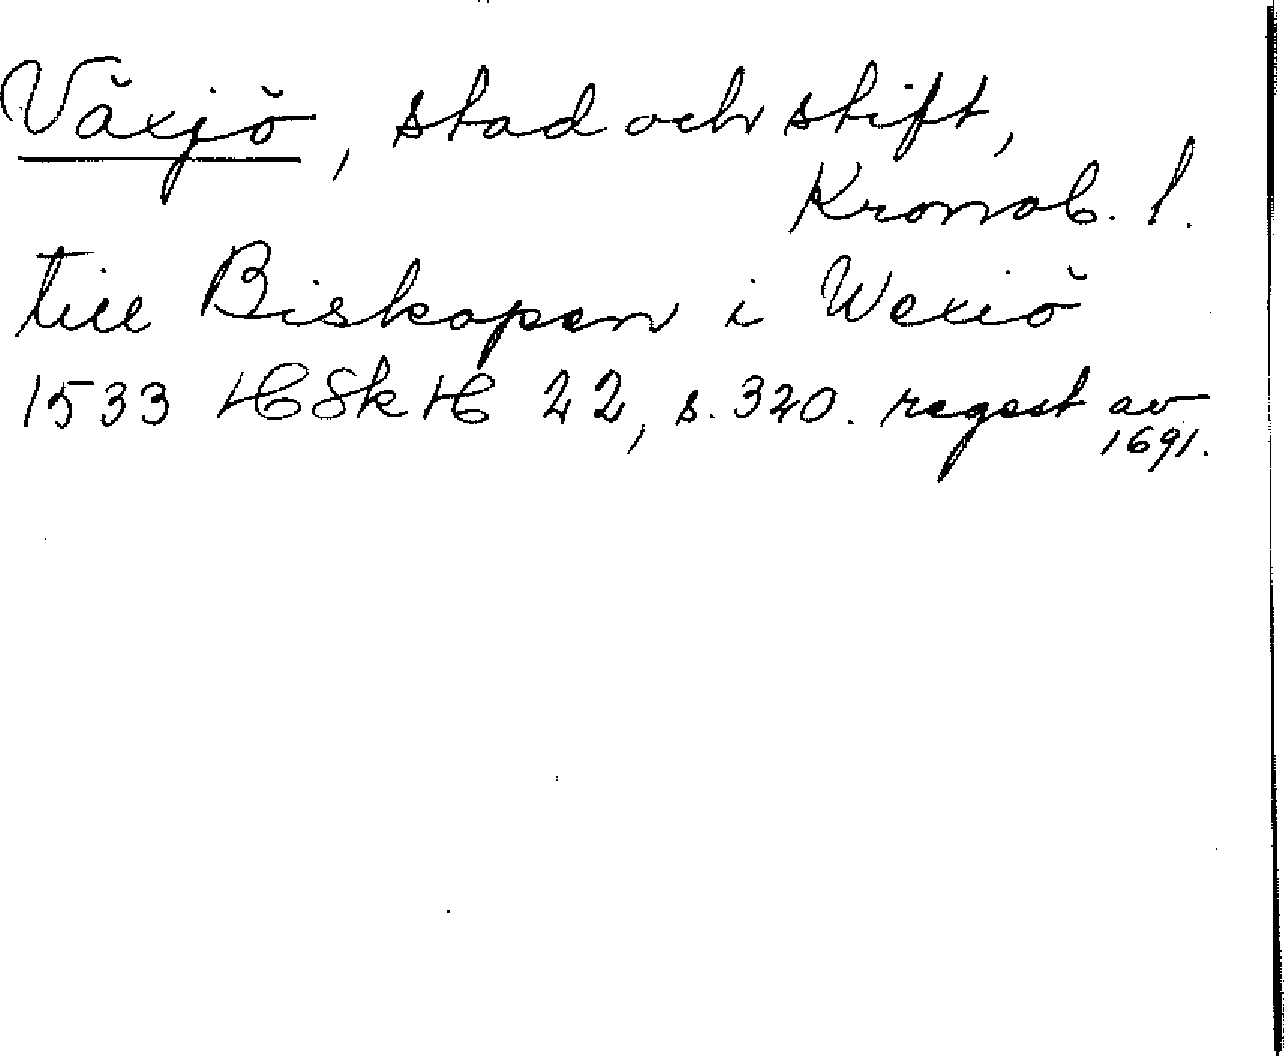 Växjö, stad och stift,
Kronob. l.
till Biskopen i Wexiö
1533 HSkH 22, s. 320. regest av
1691.